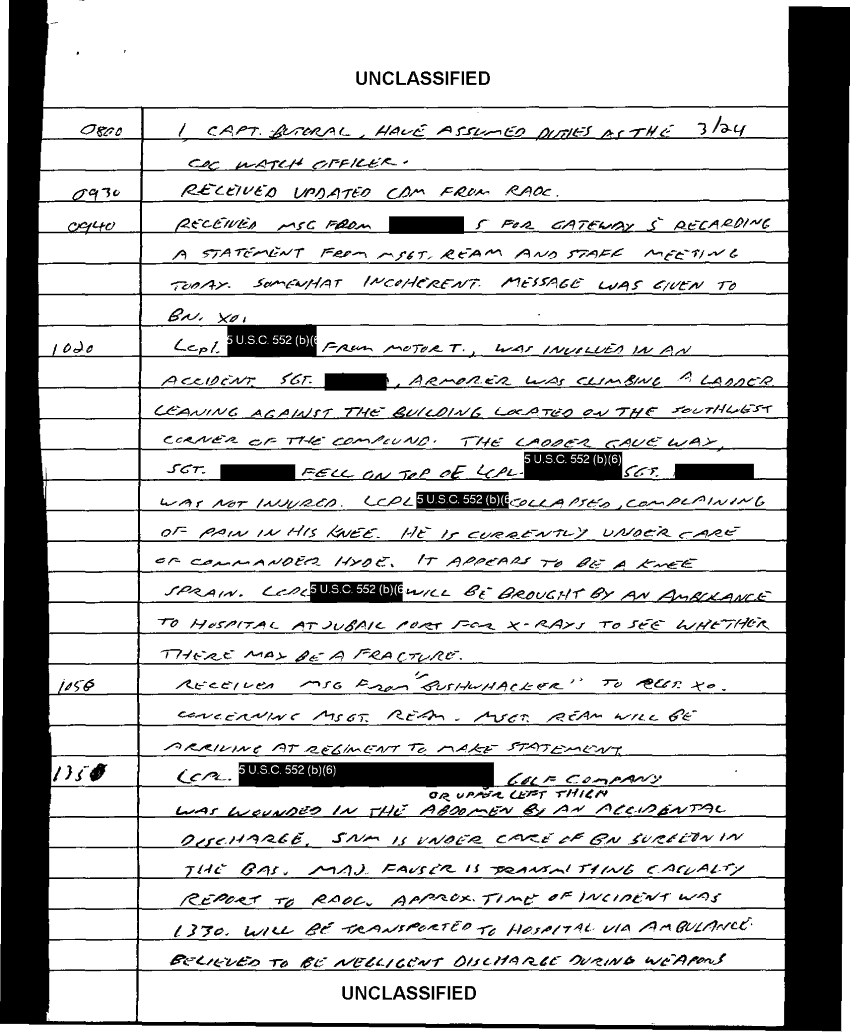 UNCLASSIFIED
0800 I, CAPT. BUTORAL, HAVE ASSUMED DUTIES AS THE 3/24
COC WATCH OFFICER.
0930 RECEIVED UPDATED CDM FROM RAOC.
0940 RECEIVED MSG FROM 5 FOR GATEWAY 5 REGARDING
A STATEMENT FROM MSGT. REAM AND STAFF MEETING
TODAY. SOMEWHAT INCOHERENT. MESSAGE WAS GIVEN TO
BN. XO.
1020 LCpl. 5 U.S.C. 552 (b)(6 FROM MOTOR T., WAS INVOLVED IN AN
ACCIDENT. SGT. , ARMORER WAS CLIMBING A LADDER
LEANING AGAINST THE BUILDING LOCATED ON THE SOUTHWEST
CORNER OF THE COMPOUND. THE LADDER GAVE WAY,
SGT. FELL ON TOP OF LCPL. 5 U.S.C. 552 (b)(6) SGT.
WAS NOT INJURED. LCPL 5 U.S.C. 552 (b)(6 COLLAPSED, COMPLAINING
OF PAIN IN HIS KNEE. HE IS CURRENTLY UNDER CARE
OF COMMANDER HYDE. IT APPEARS TO BE A KNEE
SPRAIN. LCPL 5 U.S.C. 552 (b)(6 WILL BE BROUGHT BY AN AMBULANCE
TO HOSPITAL AT JUBAIL PORT FOR X-RAYS TO SEE WHETHER
THERE MAY BE A FRACTURE.
1050 RECEIVED MSG FROM "BUSHWHACKER" TO REGT. XO.
CONCERNING MSGT. REAM. MSGT. REAM WILL BE
ARRIVING AT REGIMENT TO MAKE STATEMENT
1350 LCPL. 5 U.S.C. 552 (b)(6) GOLF COMPANY
OR UPPER LEFT THIGH
WAS WOUNDED IN THE ABDOMEN BY AN ACCIDENTAL
DISCHARGE. SNM IS UNDER CARE OF BN SURGEON IN
THE BAS. MAJ. FAUSER IS TRANSMITTING CASUALTY
REPORT TO RAOC. APPROX. TIME OF INCIDENT WAS
1330. WILL BE TRANSPORTED TO HOSPITAL VIA AMBULANCE.
BELIEVED TO BE NELLIGENT DISCHARGE DURING WEAPONS
UNCLASSIFIED